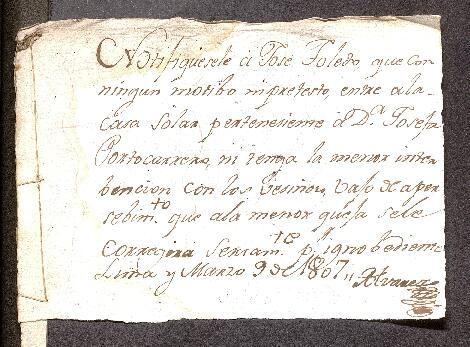 Notifiquesele á José Toledo, que con
ningun motibo ni pretesto, entre a la
casa solar perteneciente á D.ª Josefa
Portocarrero, ni tenga la menor inter
bencion con los vesinos, vajo de aper
sebim.to que ala menor queja sele
corregira seriam.te p.r ignobediente
Lima y Marzo 9 de 1807,, Alvarez